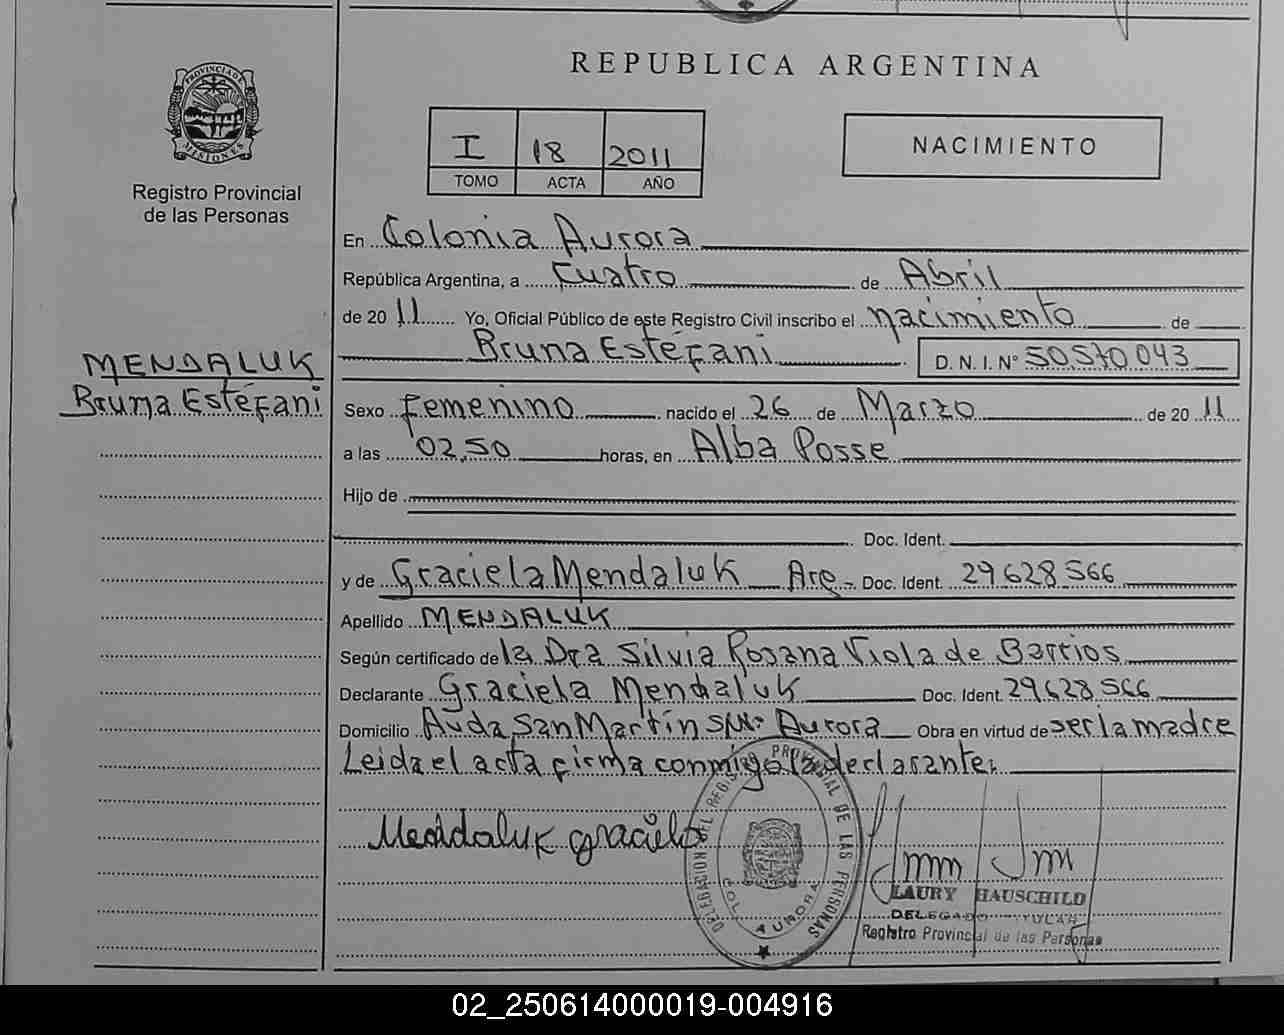 REPUBLICA ARGENTINA
PROVINCIA DE
MISIONES
Registro Provincial
de las Personas
I 18 2011
TOMO ACTA AÑO
NACIMIENTO
En Colonia Aurora
República Argentina, a cuatro de Abril
de 2011 Yo, Oficial Público de este Registro Civil inscribo el nacimiento de
Bruna Estéfani D. N. I. Nº 50.570.043
MENDALUK
Bruna Estéfani
Sexo Femenino nacido el 26 de Marzo de 2011
a las 02,50 horas, en Alba Posse
Hijo de
Doc. Ident.
y de Graciela Mendaluk Arg.- Doc. Ident. 29628566
Apellido MENDALUK
Según certificado de la Dra Silvia Rosana Viola de Barrios
Declarante Graciela Mendaluk Doc. Ident. 29628566
Domicilio Avda San Martín S/Nº Aurora Obra en virtud de ser la madre
Leida el acta firma conmigo la declarante.
Mendaluk graciela
DELEGACION DEL REGISTRO PROVINCIAL DE LAS PERSONAS
COL. AURORA
LAURY HAUSCHILD
DELEGADO TITULAR
Registro Provincial de las Personas
02_250614000019-004916